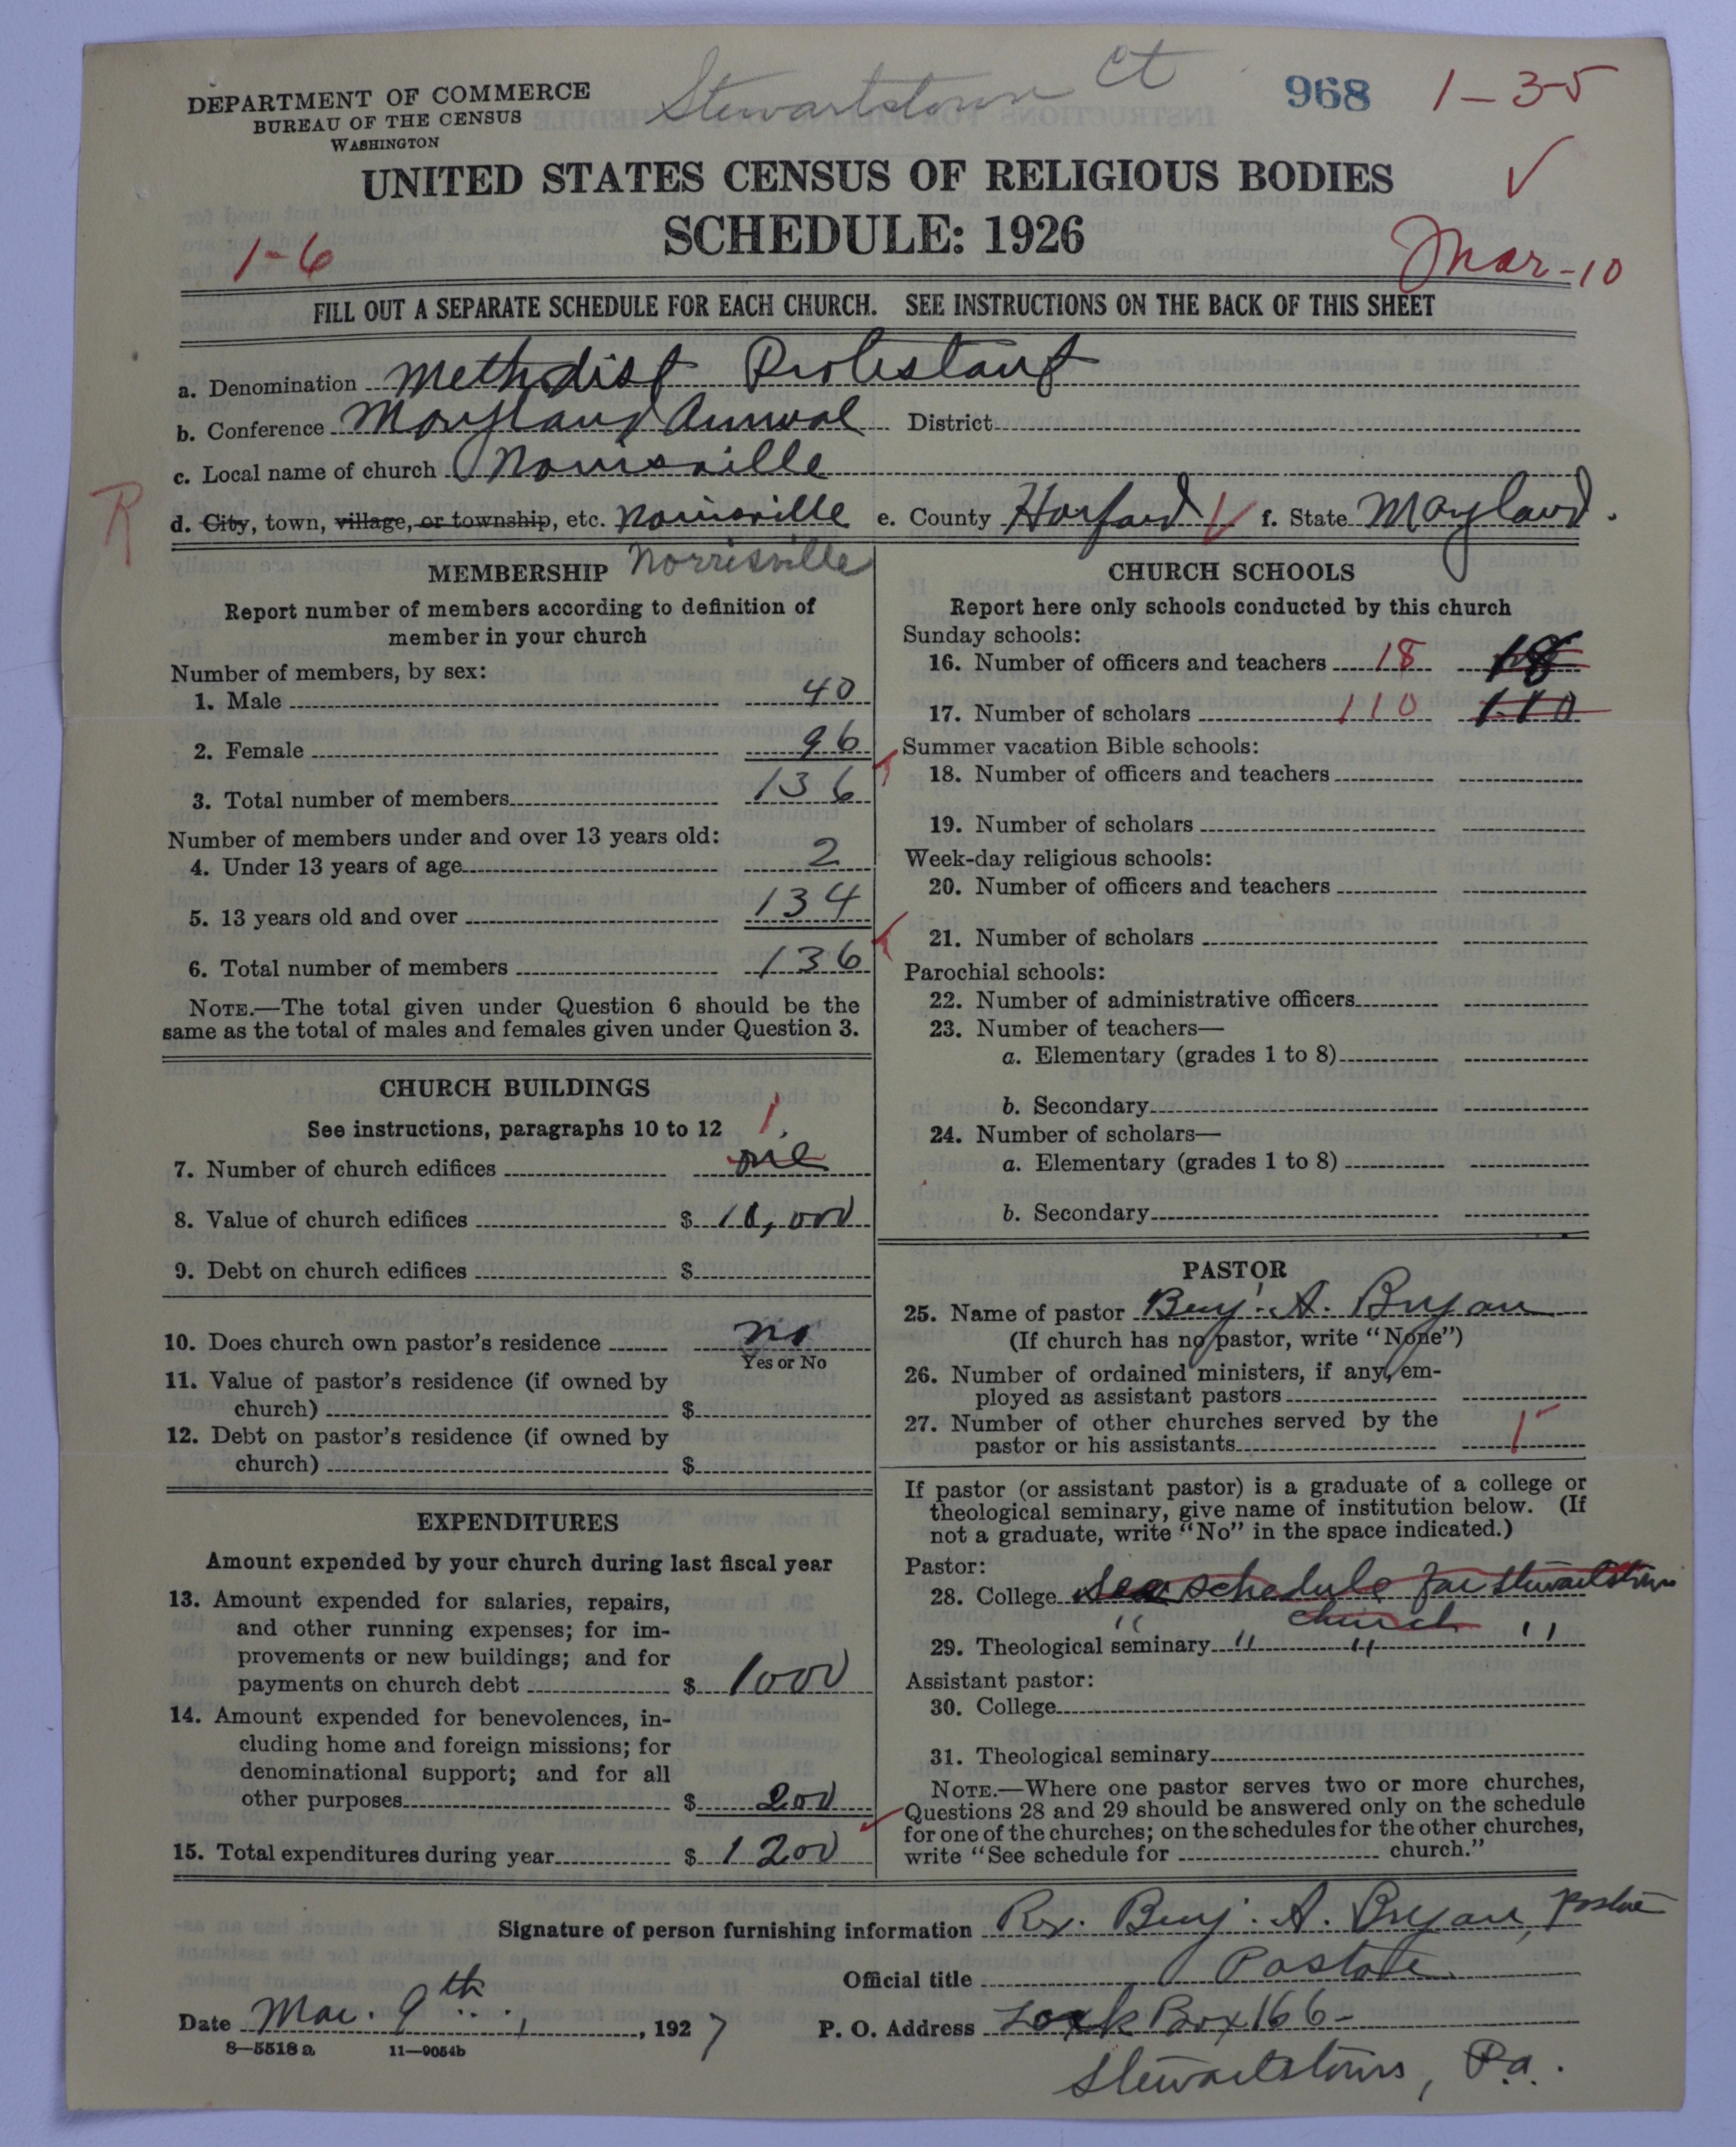 Stewartstown Ct
968
1-3-5
DEPARTMENT OF COMMERCE
BUREAU OF THE CENSUS
WASHINGTON
UNITED STATES CENSUS OF RELIGIOUS BODIES
SCHEDULE: 1926
1-6
Mar-10
FILL OUT A SEPARATE SCHEDULE FOR EACH CHURCH. SEE INSTRUCTIONS ON THE BACK OF THIS SHEET
a. Denomination Methodist Protestant
b. Conference Maryland Annual District
c. Local name of church Norrisville
R
d. City, town, village, or township, etc. Norrisville e. County Harford f. State Maryland.
Norrisville
MEMBERSHIP
Report number of members according to definition of
member in your church
Number of members, by sex:
1. Male 40
2. Female 96
3. Total number of members 136
Number of members under and over 13 years old:
4. Under 13 years of age 2
5. 13 years old and over 134
6. Total number of members 136
NOTE.—The total given under Question 6 should be the
same as the total of males and females given under Question 3.
CHURCH BUILDINGS
See instructions, paragraphs 10 to 12
1
7. Number of church edifices one
8. Value of church edifices $ 10,000
9. Debt on church edifices $
10. Does church own pastor's residence no
Yes or No
11. Value of pastor's residence (if owned by
church) $
12. Debt on pastor's residence (if owned by
church) $
EXPENDITURES
Amount expended by your church during last fiscal year
13. Amount expended for salaries, repairs,
and other running expenses; for im-
provements or new buildings; and for
payments on church debt $ 1000
14. Amount expended for benevolences, in-
cluding home and foreign missions; for
denominational support; and for all
other purposes $ 200
15. Total expenditures during year $ 1200
CHURCH SCHOOLS
Report here only schools conducted by this church
Sunday schools:
16. Number of officers and teachers 18 18
17. Number of scholars 110 110
Summer vacation Bible schools:
18. Number of officers and teachers
19. Number of scholars
Week-day religious schools:
20. Number of officers and teachers
21. Number of scholars
Parochial schools:
22. Number of administrative officers
23. Number of teachers—
a. Elementary (grades 1 to 8)
b. Secondary
24. Number of scholars—
a. Elementary (grades 1 to 8)
b. Secondary
PASTOR
25. Name of pastor Benj. A. Bryan
(If church has no pastor, write "None")
26. Number of ordained ministers, if any, em-
ployed as assistant pastors
27. Number of other churches served by the
pastor or his assistants 1
If pastor (or assistant pastor) is a graduate of a college or
theological seminary, give name of institution below. (If
not a graduate, write "No" in the space indicated.)
Pastor:
28. College See schedule for Stewartstown
church
29. Theological seminary " " " "
Assistant pastor:
30. College
31. Theological seminary
NOTE.—Where one pastor serves two or more churches,
Questions 28 and 29 should be answered only on the schedule
for one of the churches; on the schedules for the other churches,
write "See schedule for church."
Signature of person furnishing information Rev. Benj. A. Bryan, Pastor
Official title Pastor
Date Mar. 9th, 1927 P. O. Address Lock Box 166-
8—5518 a 11—9054b
Stewartstown, Pa.